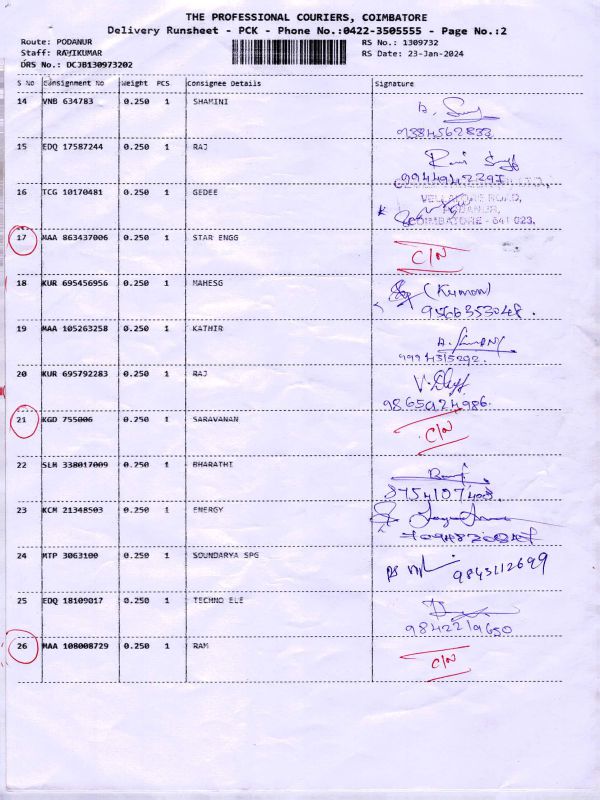 THE PROFESSIONAL COURIERS, COIMBATORE
Delivery Runsheet - PCK - Phone No.:0422-3505555 - Page No.:2
Route: PODANUR RS No.: 1309732
Staff: RAVIKUMAR RS Date: 23-Jan-2024
DRS No.: DCJB130973202
S No Consignment No Weight PCS Consignee Details Signature
14 VNB 634783 0.250 1 SHAMINI
9384562833
15 EDQ 17587244 0.250 1 RAJ
16 TCG 10170481 0.250 1 GEDEE
ROAD,
PODANUR,
COIMBATORE - 641 023.
17 MAA 863437006 0.250 1 STAR ENGG C/N
18 KUR 695456956 0.250 1 MAHESG (Kumon)
9566353048.
19 MAA 105263258 0.250 1 KATHIR
9994315292.
20 KUR 695792283 0.250 1 RAJ
9865924986.
21 KGD 755006 0.250 1 SARAVANAN C/N
22 SLM 338017009 0.250 1 BHARATHI
8754107408
23 KCM 21348503 0.250 1 ENERGY
24 MTP 3063100 0.250 1 SOUNDARYA SPG 9843112699
25 EDQ 18109017 0.250 1 TECHNO ELE
9842219650
26 MAA 108008729 0.250 1 RAM C/N